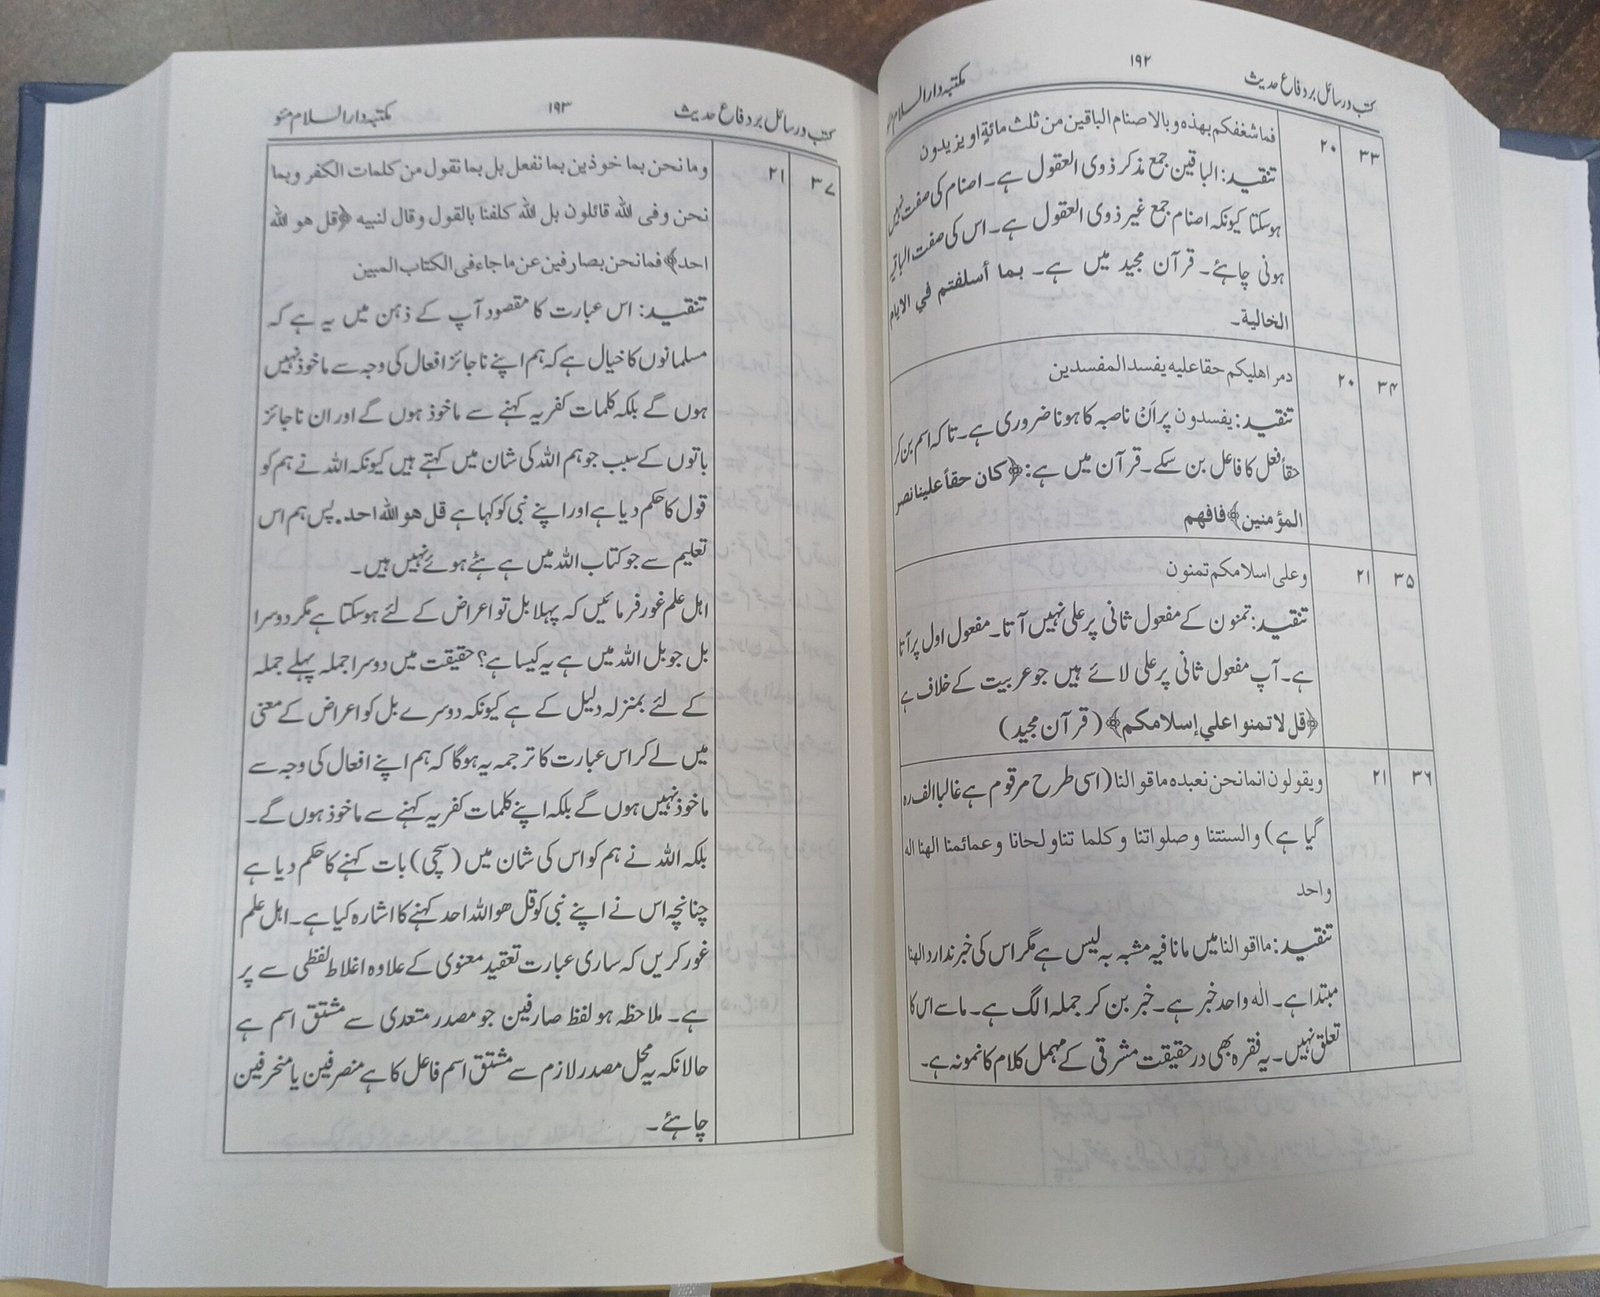 کتب و رسائل بر دفاع حدیث
۱۹۲
مکتبہ دار السلام مئو
۳۳
۲۰
فما شغفكم بهذه و بالاصنام الباقين من ثلث مائة او يزيدون
تنقید: الباقین جمع مذکر ذوی العقول ہے۔ اصنام کی صفت نہیں
ہوسکتا کیونکہ اصنام جمع غیر ذوی العقول ہے۔ اس کی صفت الباقیہ
ہونی چاہئے۔ قرآن مجید میں ہے۔ بما أسلفتم في الايام
الخالية۔
۳۴
۲۰
دمر اهليكم حقا عليه يفسد المفسدين
تنقید: یفسدون پر اَنْ ناصبہ کا ہونا ضروری ہے۔ تاکہ اسم بن کر
حقاً فعل کا فاعل بن سکے۔ قرآن میں ہے: ﴿کان حقاً علينا نصر
المؤمنين﴾ فافهم
۳۵
۲۱
وعلى اسلامكم تمنون
تنقید: تمنون کے مفعول ثانی پر علی نہیں آتا۔ مفعول اول پر آتا
ہے۔ آپ مفعول ثانی پر علی لائے ہیں جو عربیت کے خلاف ہے
﴿قل لا تمنوا علي إسلامكم﴾ (قرآن مجید)
۳۶
۲۱
ويقولون انما نحن نعبده ما قوالنا (اسی طرح مرقوم ہے غالبا الف رہ
گیا ہے) والسنتنا وصلواتنا وكلما تناولحانا وعمائمنا الهنا اله
واحد
تنقید: ما اقوالنا میں ما نافیہ مشبہ بہ لیس ہے مگر اس کی خبر ندارد الهنا
مبتدا ہے۔ الہ واحد خبر ہے۔ خبر بن کر جملہ الگ ہے۔ ما سے اس کا
تعلق نہیں۔ یہ فقرہ بھی در حقیقت مشرقی کے مہمل کلام کا نمونہ ہے۔
کتب و رسائل بر دفاع حدیث
۱۹۳
مکتبہ دار السلام مئو
۳۷
۲۱
وما نحن بما خوذين بما نفعل بل بما نقول من كلمات الكفر وبما
نحن وفى الله قائلون بل الله كلفنا بالقول وقال لنبيه ﴿قل هو الله
احد﴾ فما نحن بصارفين عن ما جاء فى الكتاب المبين
تنقید: اس عبارت کا مقصود آپ کے ذہن میں یہ ہے کہ
مسلمانوں کا خیال ہے کہ ہم اپنے ناجائز افعال کی وجہ سے ماخوذ نہیں
ہوں گے بلکہ کلمات کفریہ کہنے سے ماخوذ ہوں گے اور ان ناجائز
باتوں کے سبب جو ہم اللہ کی شان میں کہتے ہیں کیونکہ اللہ نے ہم کو
قول کا حکم دیا ہے اور اپنے نبی کو کہا ہے قل هو الله احد. پس ہم اس
تعلیم سے جو کتاب اللہ میں ہے ہٹے ہوئے نہیں ہیں۔
اہل علم غور فرمائیں کہ پہلا بل تو اعراض کے لئے ہوسکتا ہے مگر دوسرا
بل جو بل اللہ میں ہے یہ کیسا ہے؟ حقیقت میں دوسرا جملہ پہلے جملہ
کے لئے بمنزلہ دلیل کے ہے کیونکہ دوسرے بل کو اعراض کے معنی
میں لے کر اس عبارت کا ترجمہ یہ ہوگا کہ ہم اپنے افعال کی وجہ سے
ماخوذ نہیں ہوں گے بلکہ اپنے کلمات کفریہ کہنے سے ماخوذ ہوں گے۔
بلکہ اللہ نے ہم کو اس کی شان میں (سچی) بات کہنے کا حکم دیا ہے
چنانچہ اس نے اپنے نبی کو قل هو الله احد کہنے کا اشارہ کیا ہے۔ اہل علم
غور کریں کہ ساری عبارت تعقید معنوی کے علاوہ اغلاط لفظی سے پر
ہے۔ ملاحظہ ہو لفظ صارفین جو مصدر متعدی سے مشتق اسم ہے
حالانکہ یہ محل مصدر لازم سے مشتق اسم فاعل کا ہے منصرفین یا منحرفین
چاہئے۔